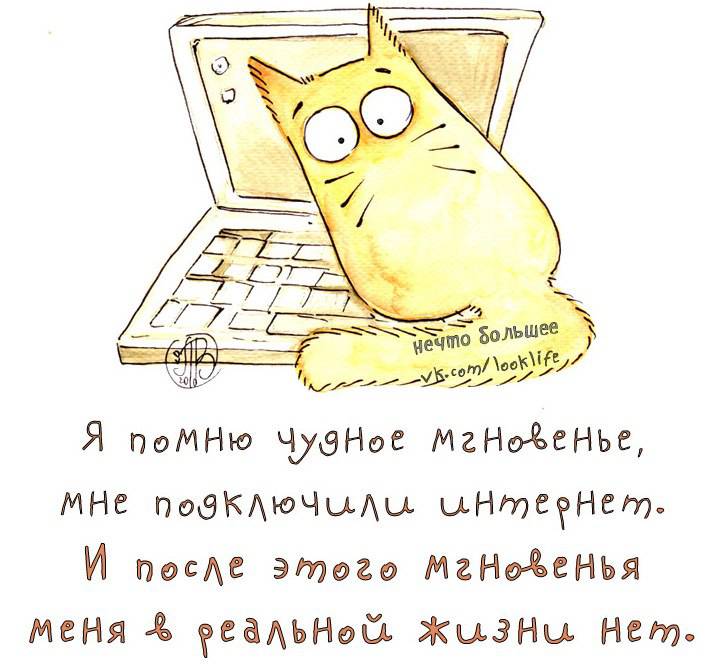 нечто большее
vk.com/looklife
Я помню чудное мгновенье,
мне подключили интернет.
И после этого мгновенья
меня в реальной жизни нет.